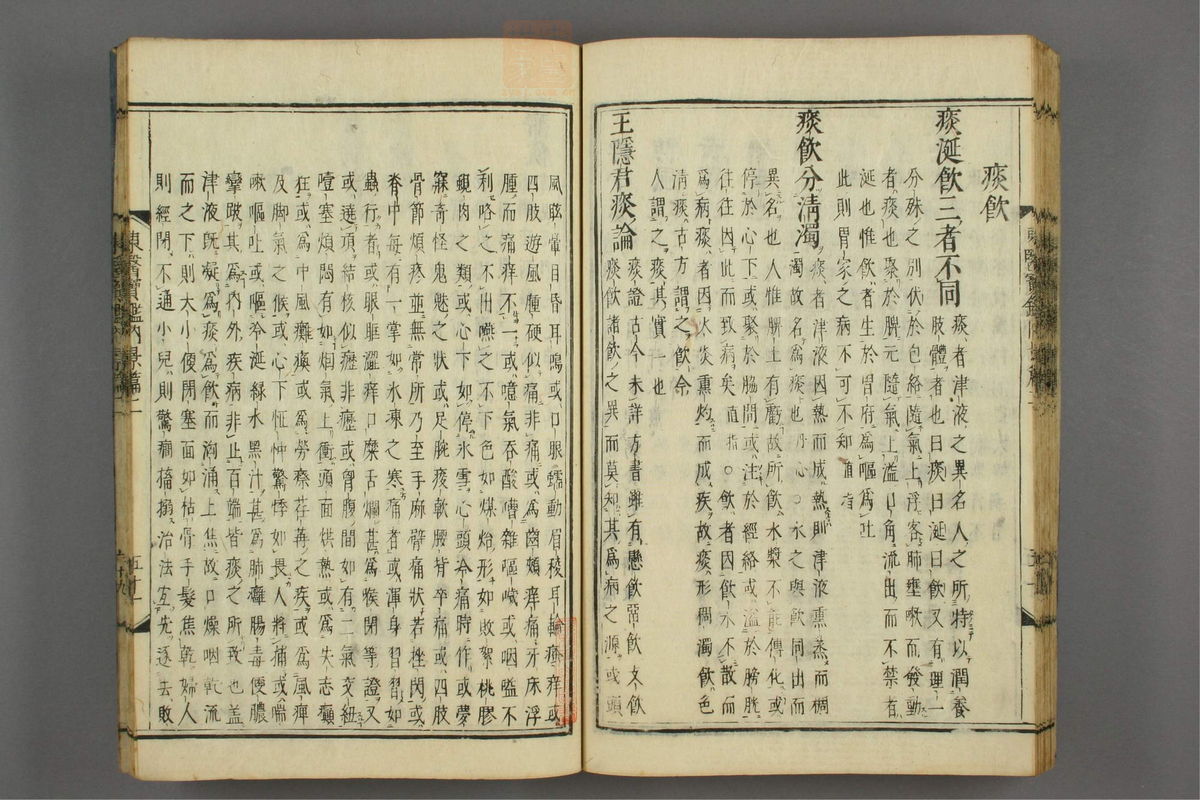 痰飲
痰涎飲三者不同 痰者津液之異名人之所特以潤養
肢體者也曰痰曰涎曰飲又有理一
分殊之別伏於包絡隨氣上浮客肺壅嗽而發動
者痰也聚於脾元隨氣上溢口角流出而不禁者
涎也惟飲者生於胃府為嘔為吐
此則胃家之病不可不知直指
痰飲分清濁 痰者津液因熱而成熱則津液熏蒸而稠
濁故名為痰也丹心○水之與飲同出而
異名也人惟脾土有虧故所飲水漿不能傳化或
停於心下或聚於脇間或注於經絡或溢於膀胱
往往因此而致病矣直指○飲者因飲水不散而
為病痰者因火炎熏灼而成疾故痰形稠濁飲色
清痰古方謂之飲今
人謂之痰其實一也
王隱君痰論 痰證古今未詳方書雖有懸飲留飲支飲
痰飲諸飲之異而莫知其為病之源或頭
風眩暈目昏耳鳴或口眼蠕動眉稜耳輪瘙痒或
四肢遊風腫硬似痛非痛或為齒頰痒痛牙床浮
腫而痛痒不一或噫氣吞酸嘈雜嘔噦或咽嗌不
利咯之不出嚥之不下色如煤炲形如敗絮桃膠
蜆肉之類或心下如停氷雪心頭冷痛時作或夢
寐奇怪鬼魅之狀或足腕痠軟腰背卒痛或四肢
骨節煩疼並無常所乃至手麻臂痛狀若挫閃或
脊中每有一掌如氷凍之寒痛者或渾身習習如
蟲行者或眼眶澀痒口糜舌爛甚為喉閉等證又
或遶項結核似癧非癧或胷腹間如有二氣交紐
噎塞煩悶有如烟氣上衝頭面烘熱或為失志癲
狂或為中風癱瘓或為勞瘵荏苒之疾或為風痺
及脚氣之候或心下怔忡驚悸如畏人將捕或喘
嗽嘔吐或嘔冷涎綠水黑汁甚為肺癰腸毒便膿
攣跛其為內外疾病非止百端皆痰之所致也盖
津液旣凝為痰為飲而洶涌上焦故口燥咽乾流
而之下則大小便閉塞面如枯骨手髮焦乾婦人
則經閉不通小兒則驚癎搐搦治法宜先逐去敗
東醫寶鑑內景篇二
五十一